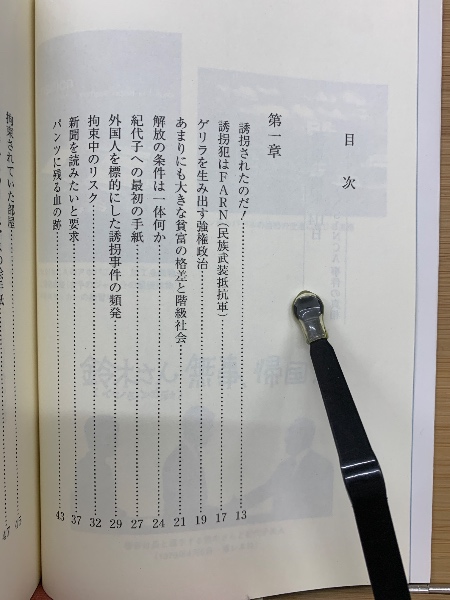 目次
第一章
誘拐されたのだ！……13
誘拐犯はFARN（民族武装抵抗軍）……17
ゲリラを生み出す強権政治……19
あまりにも大きな貧富の格差と階級社会……21
解放の条件は一体何か……24
紀代子への最初の手紙……27
外国人を標的にした誘拐事件の頻発……29
拘束中のリスク……32
新聞を読みたいと要求……37
パンツに残る血の跡……43
拘束されていた部屋